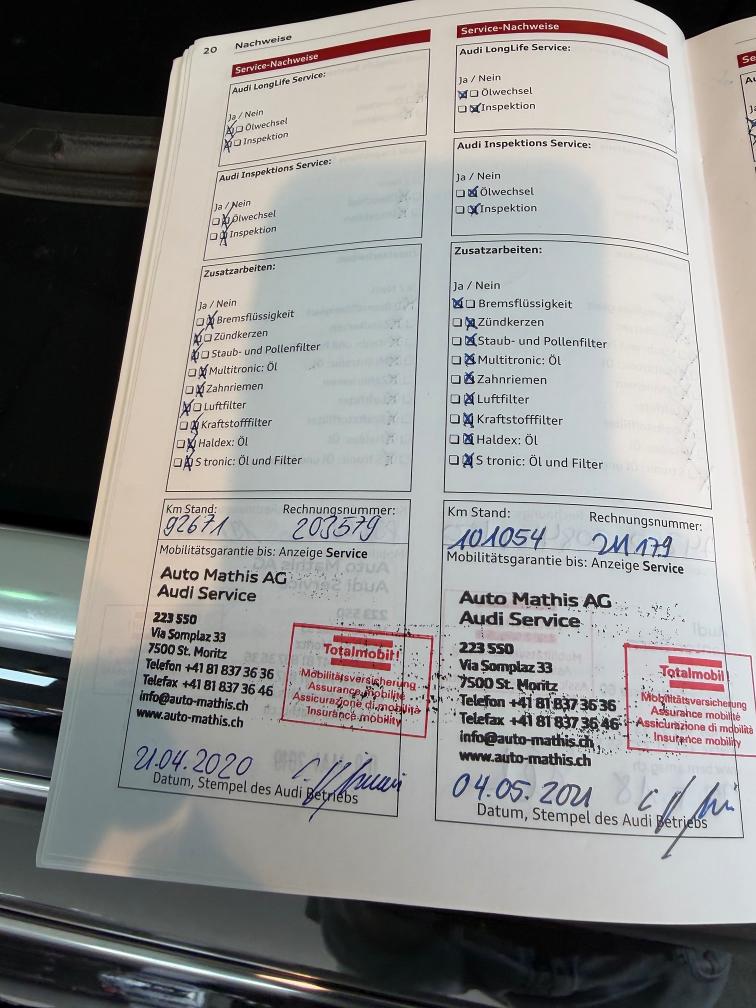 20 Nachweise
Service-Nachweise
Audi LongLife Service:
Ja / Nein
Ölwechsel
Inspektion
Audi Inspektions Service:
Ja / Nein
Ölwechsel
Inspektion
Zusatzarbeiten:
Ja / Nein
Bremsflüssigkeit
Zündkerzen
Staub- und Pollenfilter
Multitronic: Öl
Zahnriemen
Luftfilter
Kraftstofffilter
Haldex: Öl
S tronic: Öl und Filter
Km Stand: Rechnungsnummer:
92671 203579
Mobilitätsgarantie bis: Anzeige Service
Auto Mathis AG
Audi Service
223 550
Via Somplaz 33
7500 St. Moritz
Telefon +41 81 837 36 36
Telefax +41 81 837 36 46
info@auto-mathis.ch
www.auto-mathis.ch
Totalmobil!
Mobilitätsversicherung
Assurance mobilité
Assicurazione di mobilità
Insurance mobility
21.04.2020
Datum, Stempel des Audi Betriebs
Service-Nachweise
Audi LongLife Service:
Ja / Nein
Ölwechsel
Inspektion
Audi Inspektions Service:
Ja / Nein
Ölwechsel
Inspektion
Zusatzarbeiten:
Ja / Nein
Bremsflüssigkeit
Zündkerzen
Staub- und Pollenfilter
Multitronic: Öl
Zahnriemen
Luftfilter
Kraftstofffilter
Haldex: Öl
S tronic: Öl und Filter
Km Stand: Rechnungsnummer:
101054 211179
Mobilitätsgarantie bis: Anzeige Service
Auto Mathis AG
Audi Service
223 550
Via Somplaz 33
7500 St. Moritz
Telefon +41 81 837 36 36
Telefax +41 81 837 36 46
info@auto-mathis.ch
www.auto-mathis.ch
Totalmobil
Mobilitätsversicherung
Assurance mobilité
Assicurazione di mobilità
Insurance mobility
04.05.2021
Datum, Stempel des Audi Betriebs